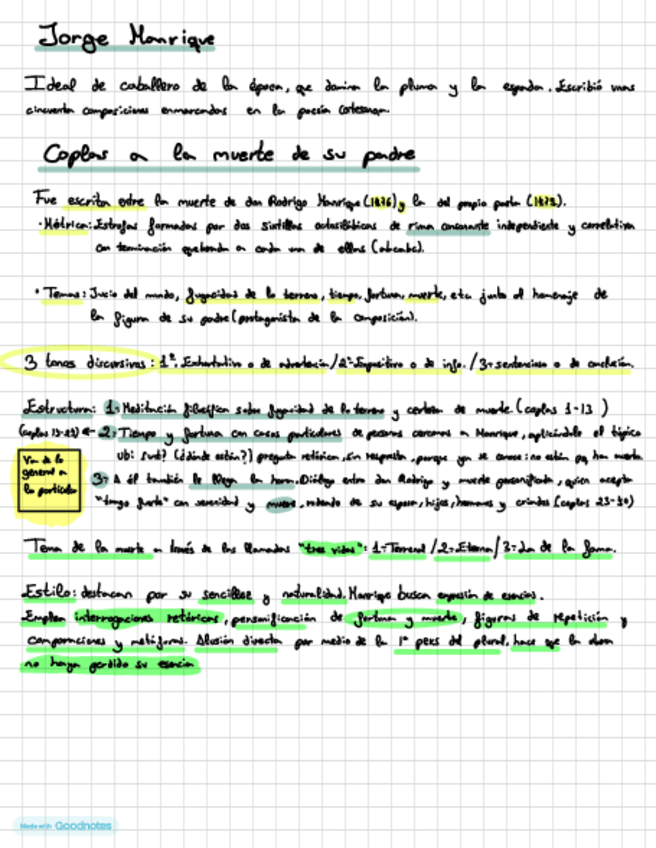 Jorge Manrique
Ideal de caballero de la época, que domina la pluma y la espada. Escribió unas
cincuenta composiciones enmarcadas en la poesía cortesana.
Coplas a la muerte de su padre
Fue escrita entre la muerte de don Rodrigo Manrique (1476) y la del propio poeta
· Métrica: Estrofas formadas por dos sextillas octosilábicas de rima consonante independiente y correlativa
con terminación quebrada a cada una de ellas (abcabc).
· Temas: Juicio del mundo, fugacidad de lo terreno, tiempo, fortuna, muerte, etc junto al homenaje de
la figura de su padre (protagonista de la composición).
3 tonos discursivos: 1º. Exhortativo o de advertencia / 2º. Expositivo o de info. / 3º sentencioso o de conclusión.
Estructura: 1· Meditación filosófica sobre fugacidad de lo terreno y certeza de muerte. (coplas 1-13)
2· Tiempo y fortuna con casos particulares de personas cercanas a Manrique, aplicándole el tópico
Ubi Sunt? (¿dónde están?) pregunta retórica, sin respuesta, porque ya se conoce: no están pq han muerto
Va de lo
general a
lo particular
3· A él también le llega la hora. Diálogo entre don Rodrigo y muerte personificada, quien acepta
con serenidad y muere, rodeado de su esposa, hijos, hermanos y criados (coplas
Tema de la muerte a través de las llamadas "tres vidas": 1-Terrenal / 2-Eterna / 3-La de la fama.
Estilo: destacan por su sencillez y naturalidad. Manrique busca expresión de esencias.
Emplea interrogaciones retóricas, personificación de fortuna y muerte, figuras de repetición y
comparaciones y metáforas. Alusión directa por medio de la 1ª pers del plural, hace que la obra
no haya perdido su esencia
Made with Goodnotes